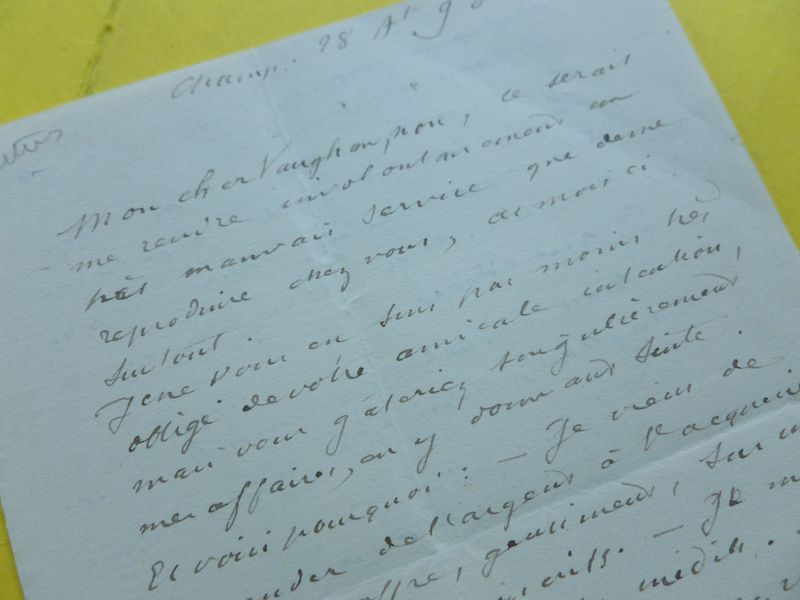 Champ. 28 At 90
Mon cher Vaughan, non, ce serait
me rendre involontairement un
très mauvais service que de me
reproduire chez vous, ces mois ci
surtout.
Je ne vous en suis pas moins très
obligé de votre amicale intention,
mais vous gâteriez singulièrement
mes affaires, en y donnant suite.
Et voici pourquoi : — Je viens de
de l'argent à l'acquéreur
gentiment, sur
— Je
inédits.